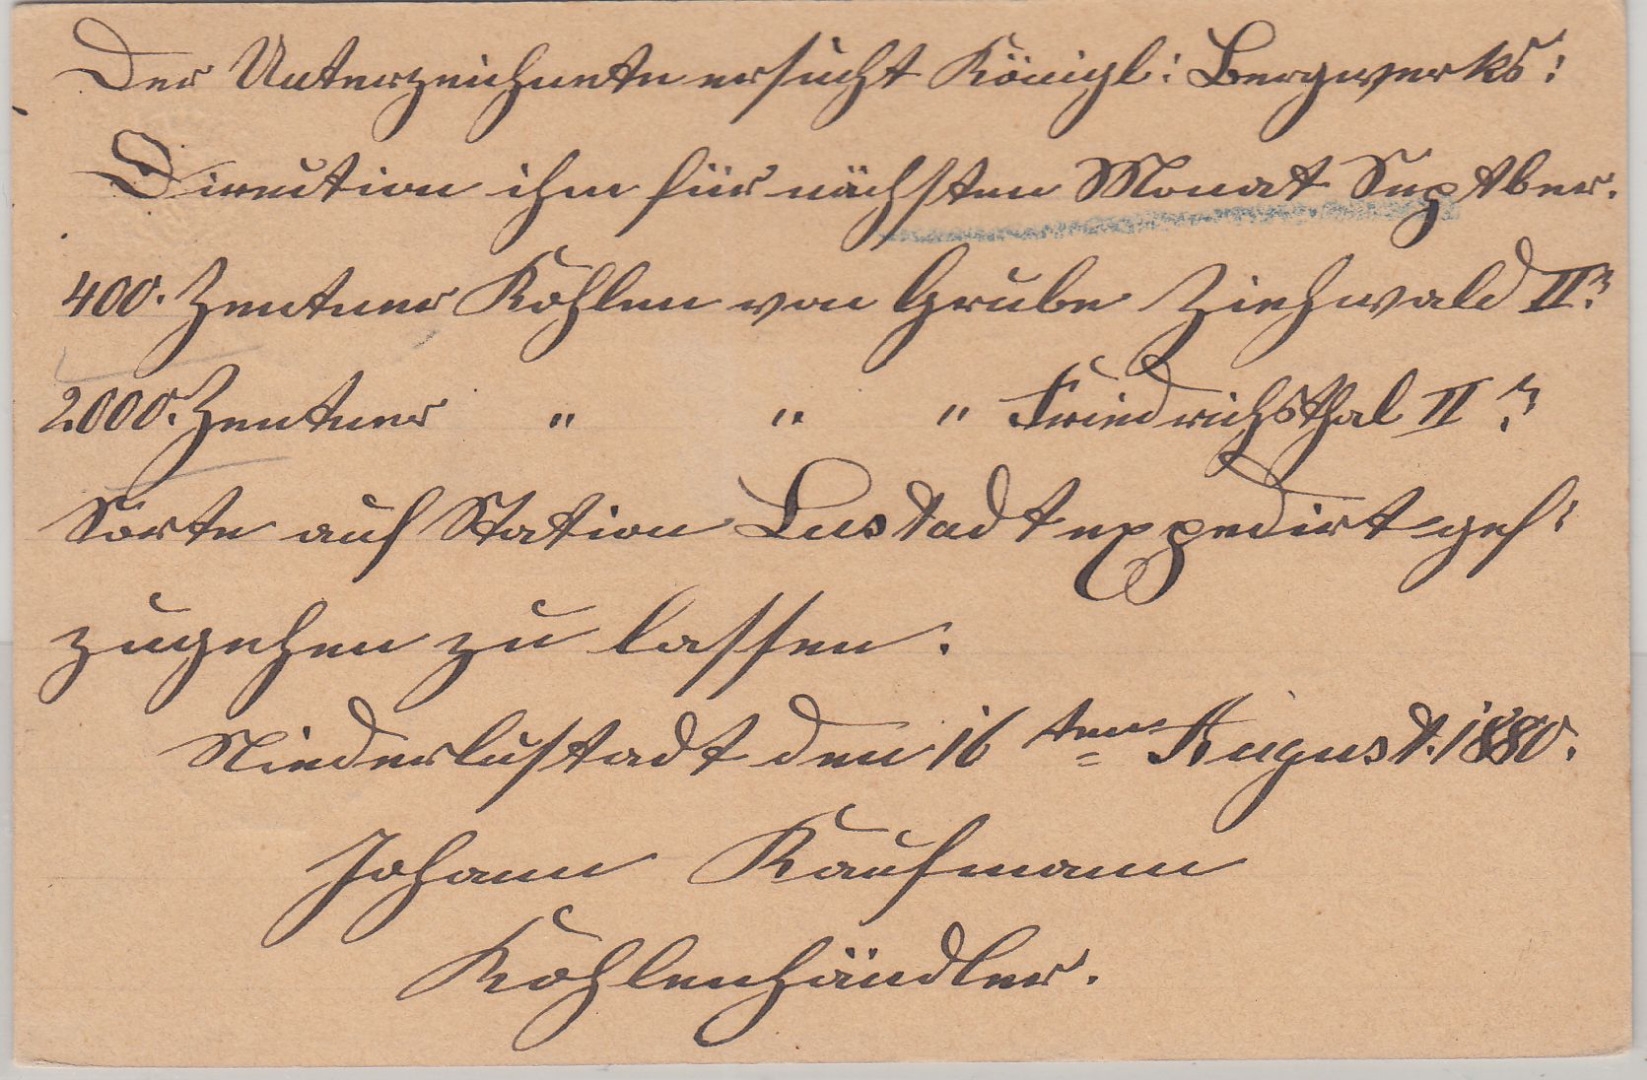 Der Unterzeichnete ersucht Königl: Bergwerks:
Direction ihm für nächsten Monat Septber.
400. Zentner Kohlen von Grube Ziehwald II.r
2000. Zentner " " " Friedrichsthal II.r
Sorte auf Station Lustadt expedirt gef:
zugehen zu lassen.
Niederlustadt den 16ten August. 1880.
Johann Kaufmann
Kohlenhändler.